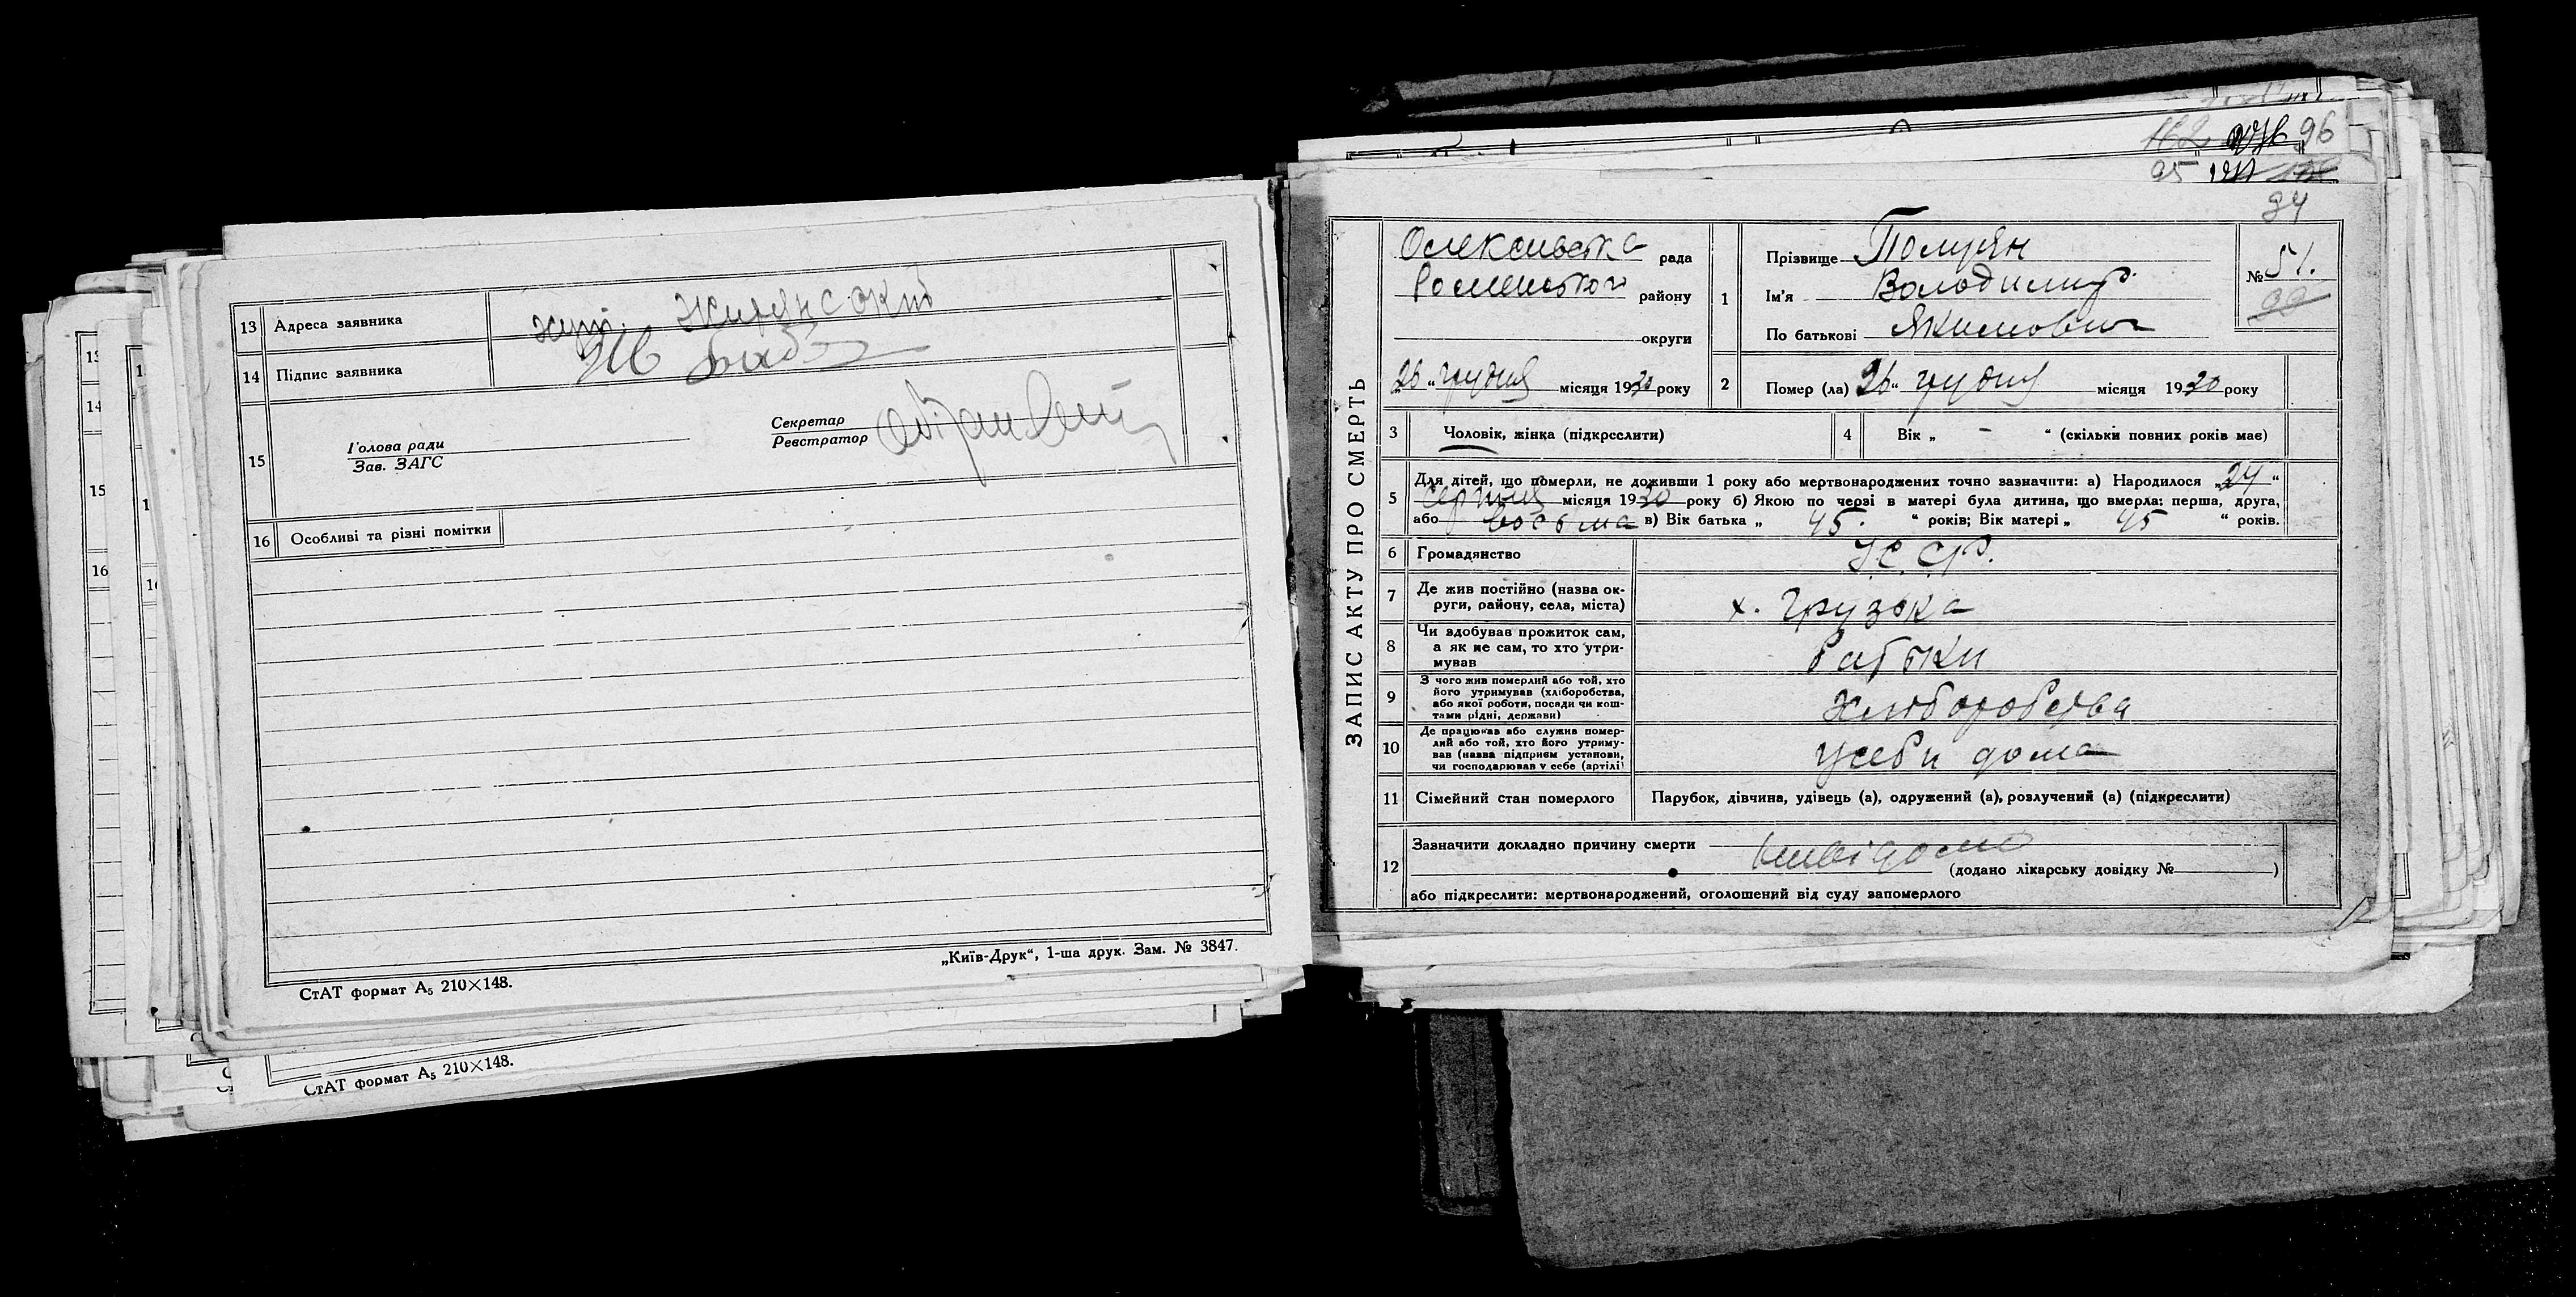 13 Адреса заявника
хут.
14 Підпис заявника
15
Голова ради
Зав. ЗАГС
Секретар
Реєстратор
16 Особливі та різні помітки
СтАТ формат А₅ 210×148.
„Київ-Друк“, 1-ша друк. Зам. № 3847.
СтАТ формат А₅ 210×148.
15
14
15
16
96
95
94
ЗАПИС АКТУ ПРО СМЕРТЬ
рада
Роменського району
округи
26 „ грудня місяця 1930 року
1 Прізвище
Ім'я Володимир
По батькові Якимович
№ 51.
2 Помер (ла) 26 „ грудня місяця 1930 року
3 Чоловік, жінка (підкреслити)
4 Вік „ – “ (скільки повних років має)
5 Для дітей, що померли, не доживши 1 року або мертвонароджених точно зазначити: а) Народилося „24“
серпня місяця 1930 року б) Якою по черзі в матері була дитина, що вмерла: перша, друга,
або восьма в) Вік батька „ 45. “ років; Вік матері „ 45 “ років.
6 Громадянство У.С.С.Р.
7 Де жив постійно (назва округи, району, села, міста) х. Грузька
8 Чи здобував прожиток сам,
а як не сам, то хто утри-
мував батьки
9 З чого жив померлий або той, хто
його утримував (хліборобства,
або якої роботи, посади чи кош-
тами рідні, держави) Хліборобства
10 Де працював або служив помер-
лий або той, хто його утриму-
вав (назва підприєм установи,
чи господарював у себе (артілі) усебе дома
11 Сімейний стан померлого Парубок, дівчина, удівець (а), одружений (а), розлучений (а) (підкреслити)
12 Зазначити докладно причину смерти невідомо
(додано лікарську довідку № )
або підкреслити: мертвонароджений, оголошений від суду запомерлого